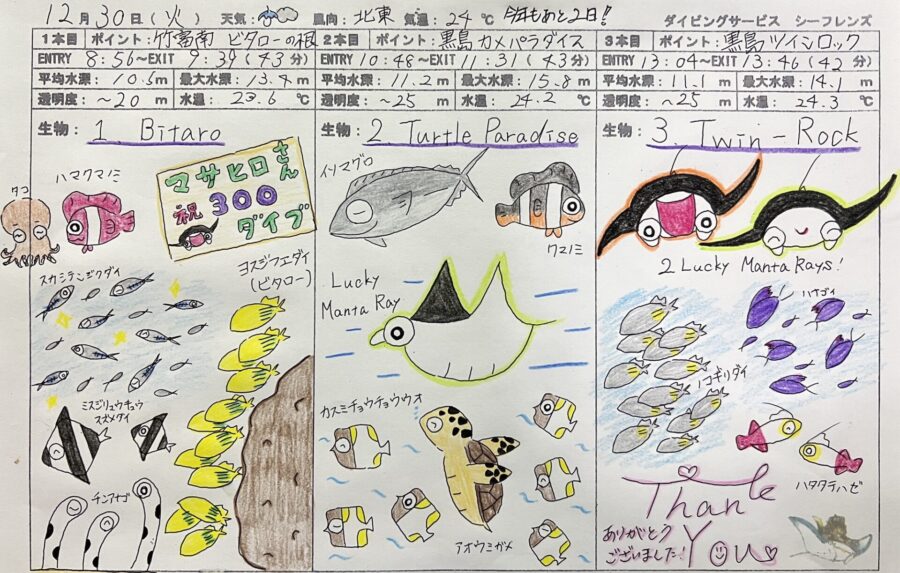 12月30日(火) 天気: 風向: 北東 気温: 24℃ 今年もあと2日! ダイビングサービス シーフレンズ
1本目 ポイント: 竹富南 ビタローの根
ENTRY 8:56~EXIT 9:39(43分)
平均水深: 10.5m 最大水深: 13.4m
透明度: ~20m 水温: 23.6℃
生物: 1 Bitaro
タコ
ハマクマノミ
マサヒロさん
祝300
ダイブ
スカシテンジクダイ
ヨスジフエダイ
(ビタロー)
ミスジリュウキュウ
スズメダイ
チンアナゴ
2本目 ポイント: 黒島 カメパラダイス
ENTRY 10:48~EXIT 11:31(43分)
平均水深: 11.2m 最大水深: 15.8m
透明度: ~25m 水温: 24.2℃
生物: 2. Turtle Paradise
イソマグロ
クマノミ
Lucky
Manta Ray
カスミチョウチョウウオ
アオウミガメ
3本目 ポイント: 黒島 ツインロック
ENTRY 13:04~EXIT 13:46(42分)
平均水深: 11.1m 最大水深: 14.1m
透明度: ~25m 水温: 24.3℃
生物: 3. Twin-Rock
2 Lucky Manta Rays!
ハナゴイ
ノコギリダイ
ハタタテハゼ
Thank
You
ありがとう
ございました!